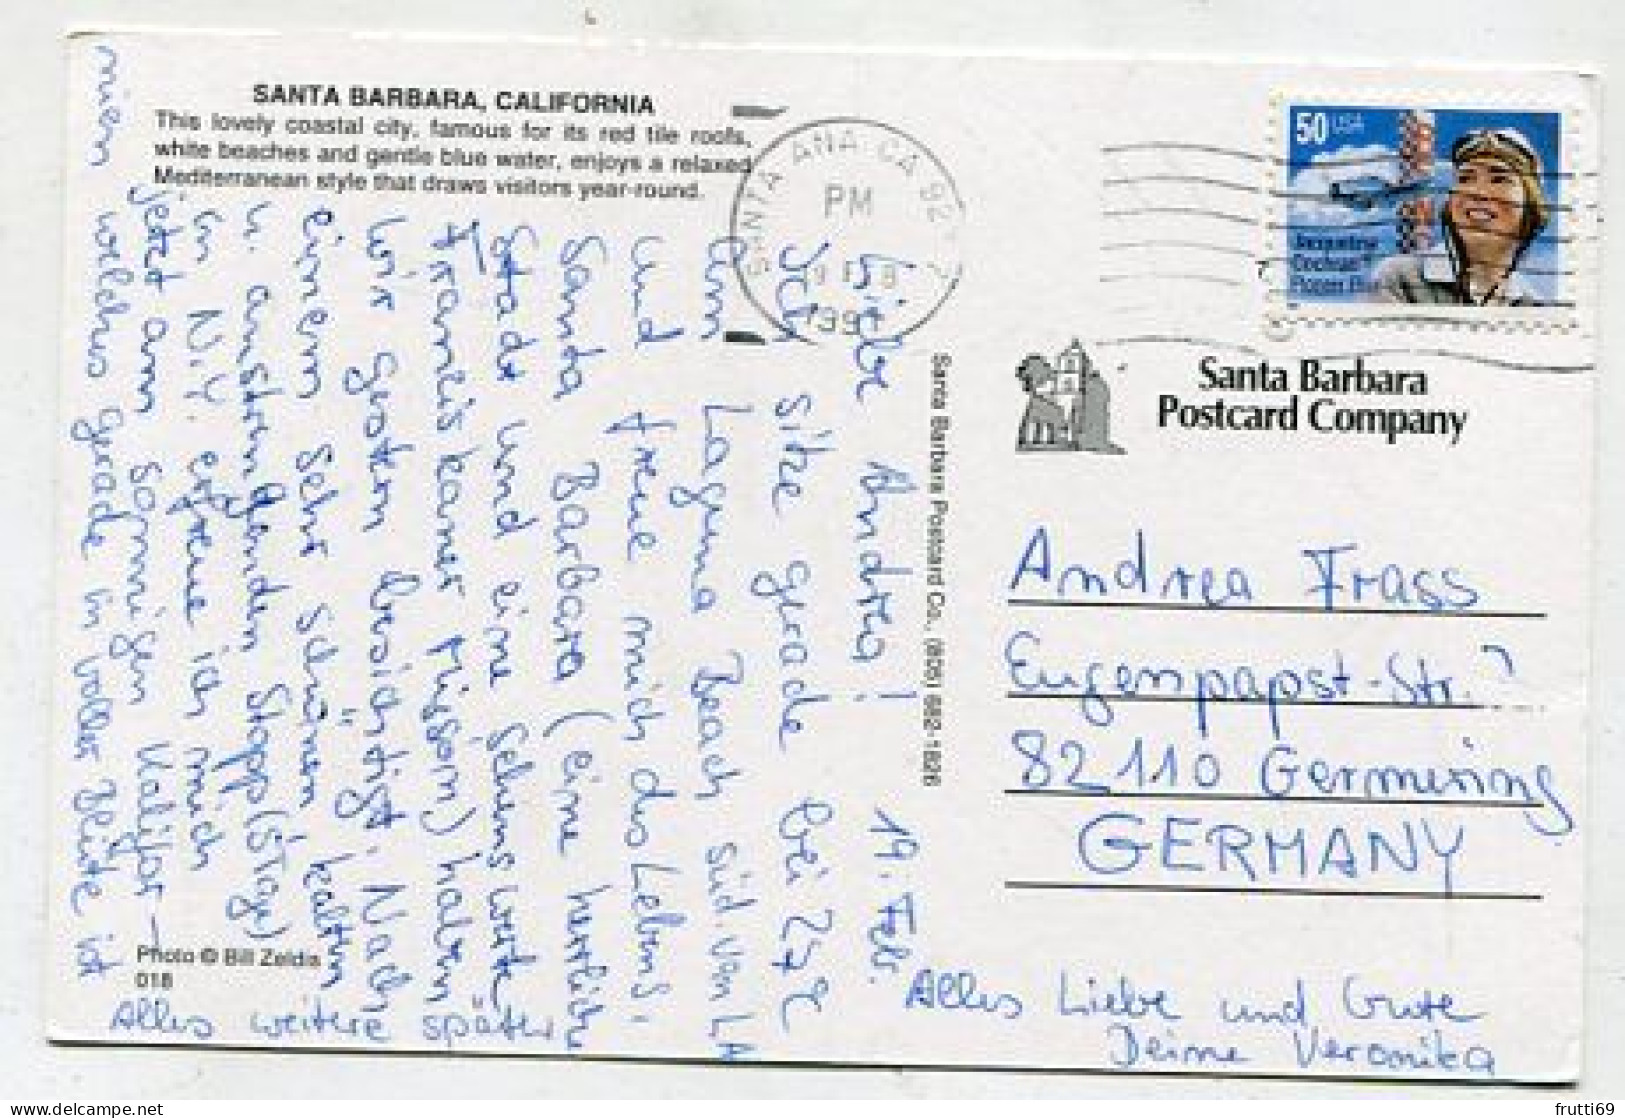 SANTA BARBARA, CALIFORNIA
This lovely coastal city, famous for its red tile roofs,
white beaches and gentle blue water, enjoys a relaxed
Mediterranean style that draws visitors year-round.
SANTA ANA, CA 92
PM
19 FEB
199
50 USA
Jacqueline
Cochran
Pioneer Pilot
Santa Barbara
Postcard Company
Santa Barbara Postcard Co., (805) 682-1826
19. Feb.
Liebe Andrea!
Ich sitze gerade bei 27°C
am Laguna Beach süd. von LA
und freue mich des Lebens.
Santa Barbara (eine herrliche
Stadt und eine sehenswerte
Franziskaner Mission) haben
wir gestern besichtigt. Nach
einem sehr schönen, kalten
u. anstrengenden Stopp (5 Tage)
in N.Y. erfreue ich mich
jetzt am sonnigen Kalifor-
nien welches gerade in voller Blüte ist
Alles weitere später
Alles Liebe und Gute
Deine Veronika
Andrea Frass
Eugenpapst-Str. 7
82110 Germering
GERMANY
Photo © Bill Zeldis
018
frutti69